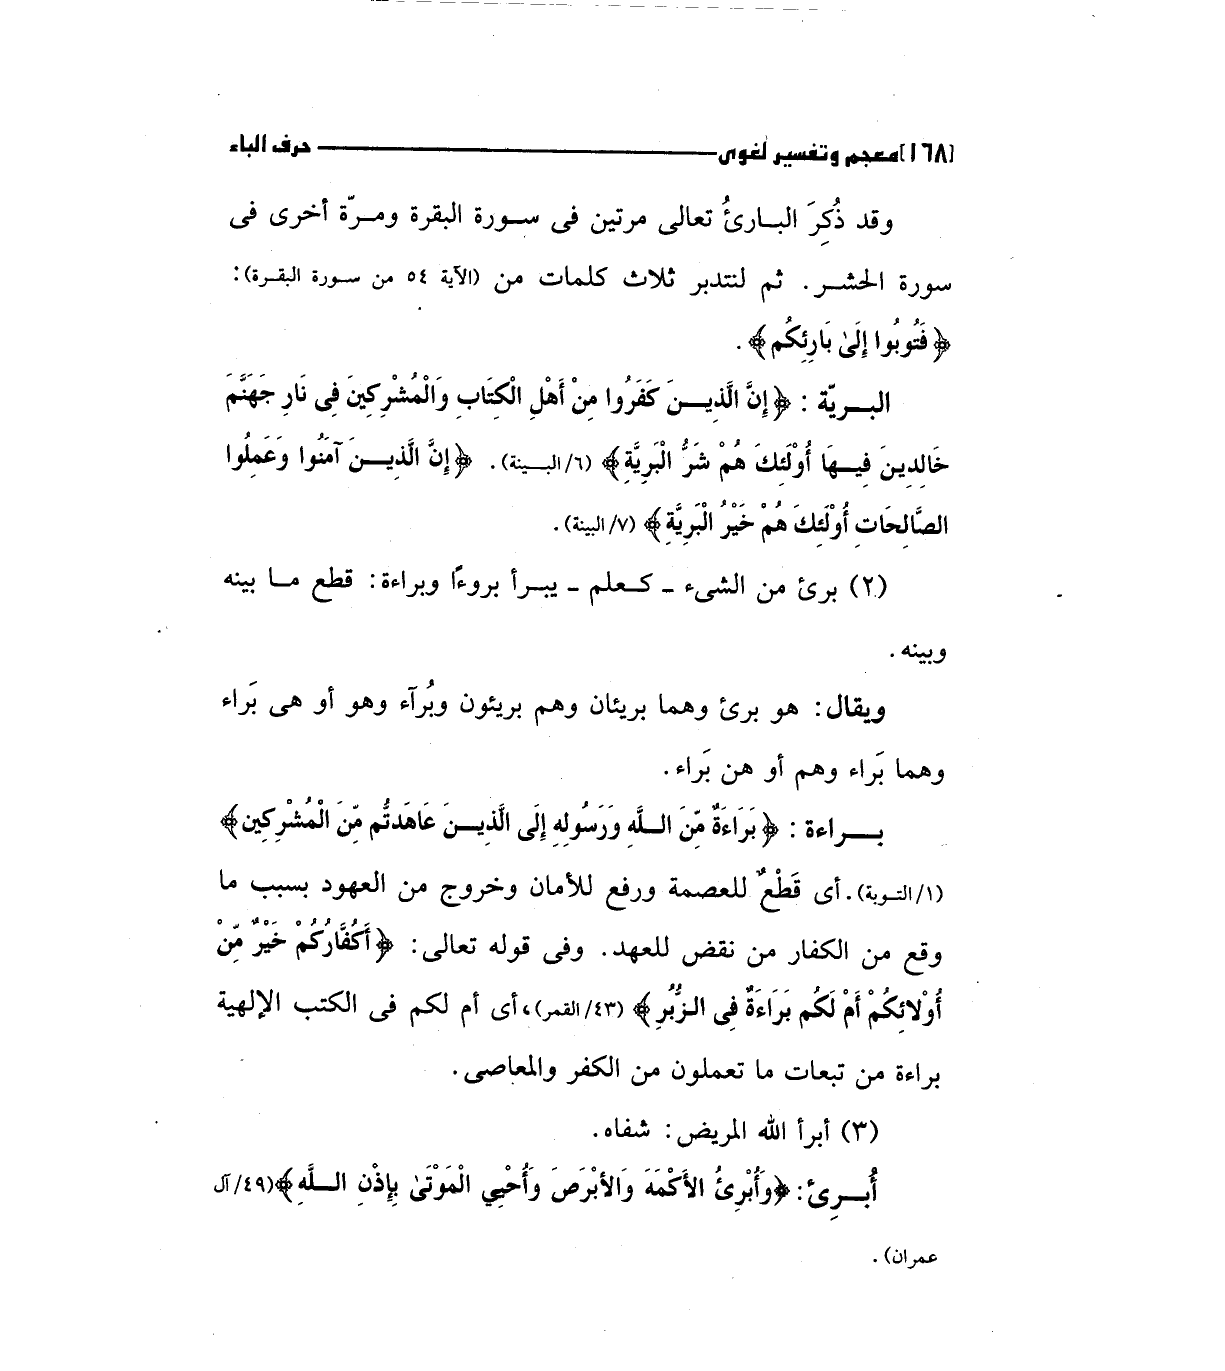 [١٦٨] معجم وتفسير لغوى ـــــــ حرف الباء
وقد ذُكِرَ البـارئُ تعالى مرتين فى سـورة البقرة ومـرّة أخرى فى
سورة الحشـر. ثم لنتدبر ثلاث كلمات من (الآية ٥٤ من سـورة البقـرة):
﴿فَتُوبُوا إِلَىٰ بَارِئِكُم﴾.
البـريّة: ﴿إِنَّ الَّذِيـنَ كَفَرُوا مِنْ أَهْلِ الْكِتَابِ وَالْمُشْرِكِينَ فِى نَارِ جَهَنَّمَ
خَالِدِينَ فِيـهَا أُوْلَئِكَ هُمْ شَرُّ الْبَرِيَّةِ﴾ (٦/البـينة). ﴿إِنَّ الَّذِيـنَ آمَنُوا وَعَمِلُوا
الصَّالِحَاتِ أُوْلَئِكَ هُمْ خَيْرُ الْبَرِيَّةِ﴾ (٧/البينة).
(٢) برئ من الشىء ـ كـعلم ـ يبـرأ بروءًا وبراءة: قطع مـا بينه
وبينه.
ويقال: هو برئ وهما بريئان وهم بريئون وبُرآء وهو أو هى بَراء
وهما بَراء وهم أو هن بَراء.
بـراءة: ﴿بَرَاءَةٌ مِّنَ اللَّهِ وَرَسُولِهِ إِلَى الَّذِيـنَ عَاهَدتُّم مِّنَ الْمُشْرِكِين﴾
(١/التـوبة). أى قَطْعٌ للعصمة ورفع للأمان وخروج من العهود بسبب ما
وقع من الكفار من نقض للعهد. وفى قوله تعالى: ﴿أَكُفَّارُكُمْ خَيْرٌ مِّنْ
أُوْلائِكُمْ أَمْ لَكُم بَرَاءَةٌ فِى الزُّبُرِ﴾ (٤٣/القمر)، أى أم لكم فى الكتب الإلهية
براءة من تبعات ما تعملون من الكفر والمعاصى.
(٣) أبرأ الله المريض: شفاه.
أُبـرِئ: ﴿وَأُبْرِئُ الأَكْمَهَ وَالأَبْرَصَ وَأُحْيِي الْمَوْتَىٰ بِإِذْنِ اللَّهِ﴾ (٤٩/آل
عمران).